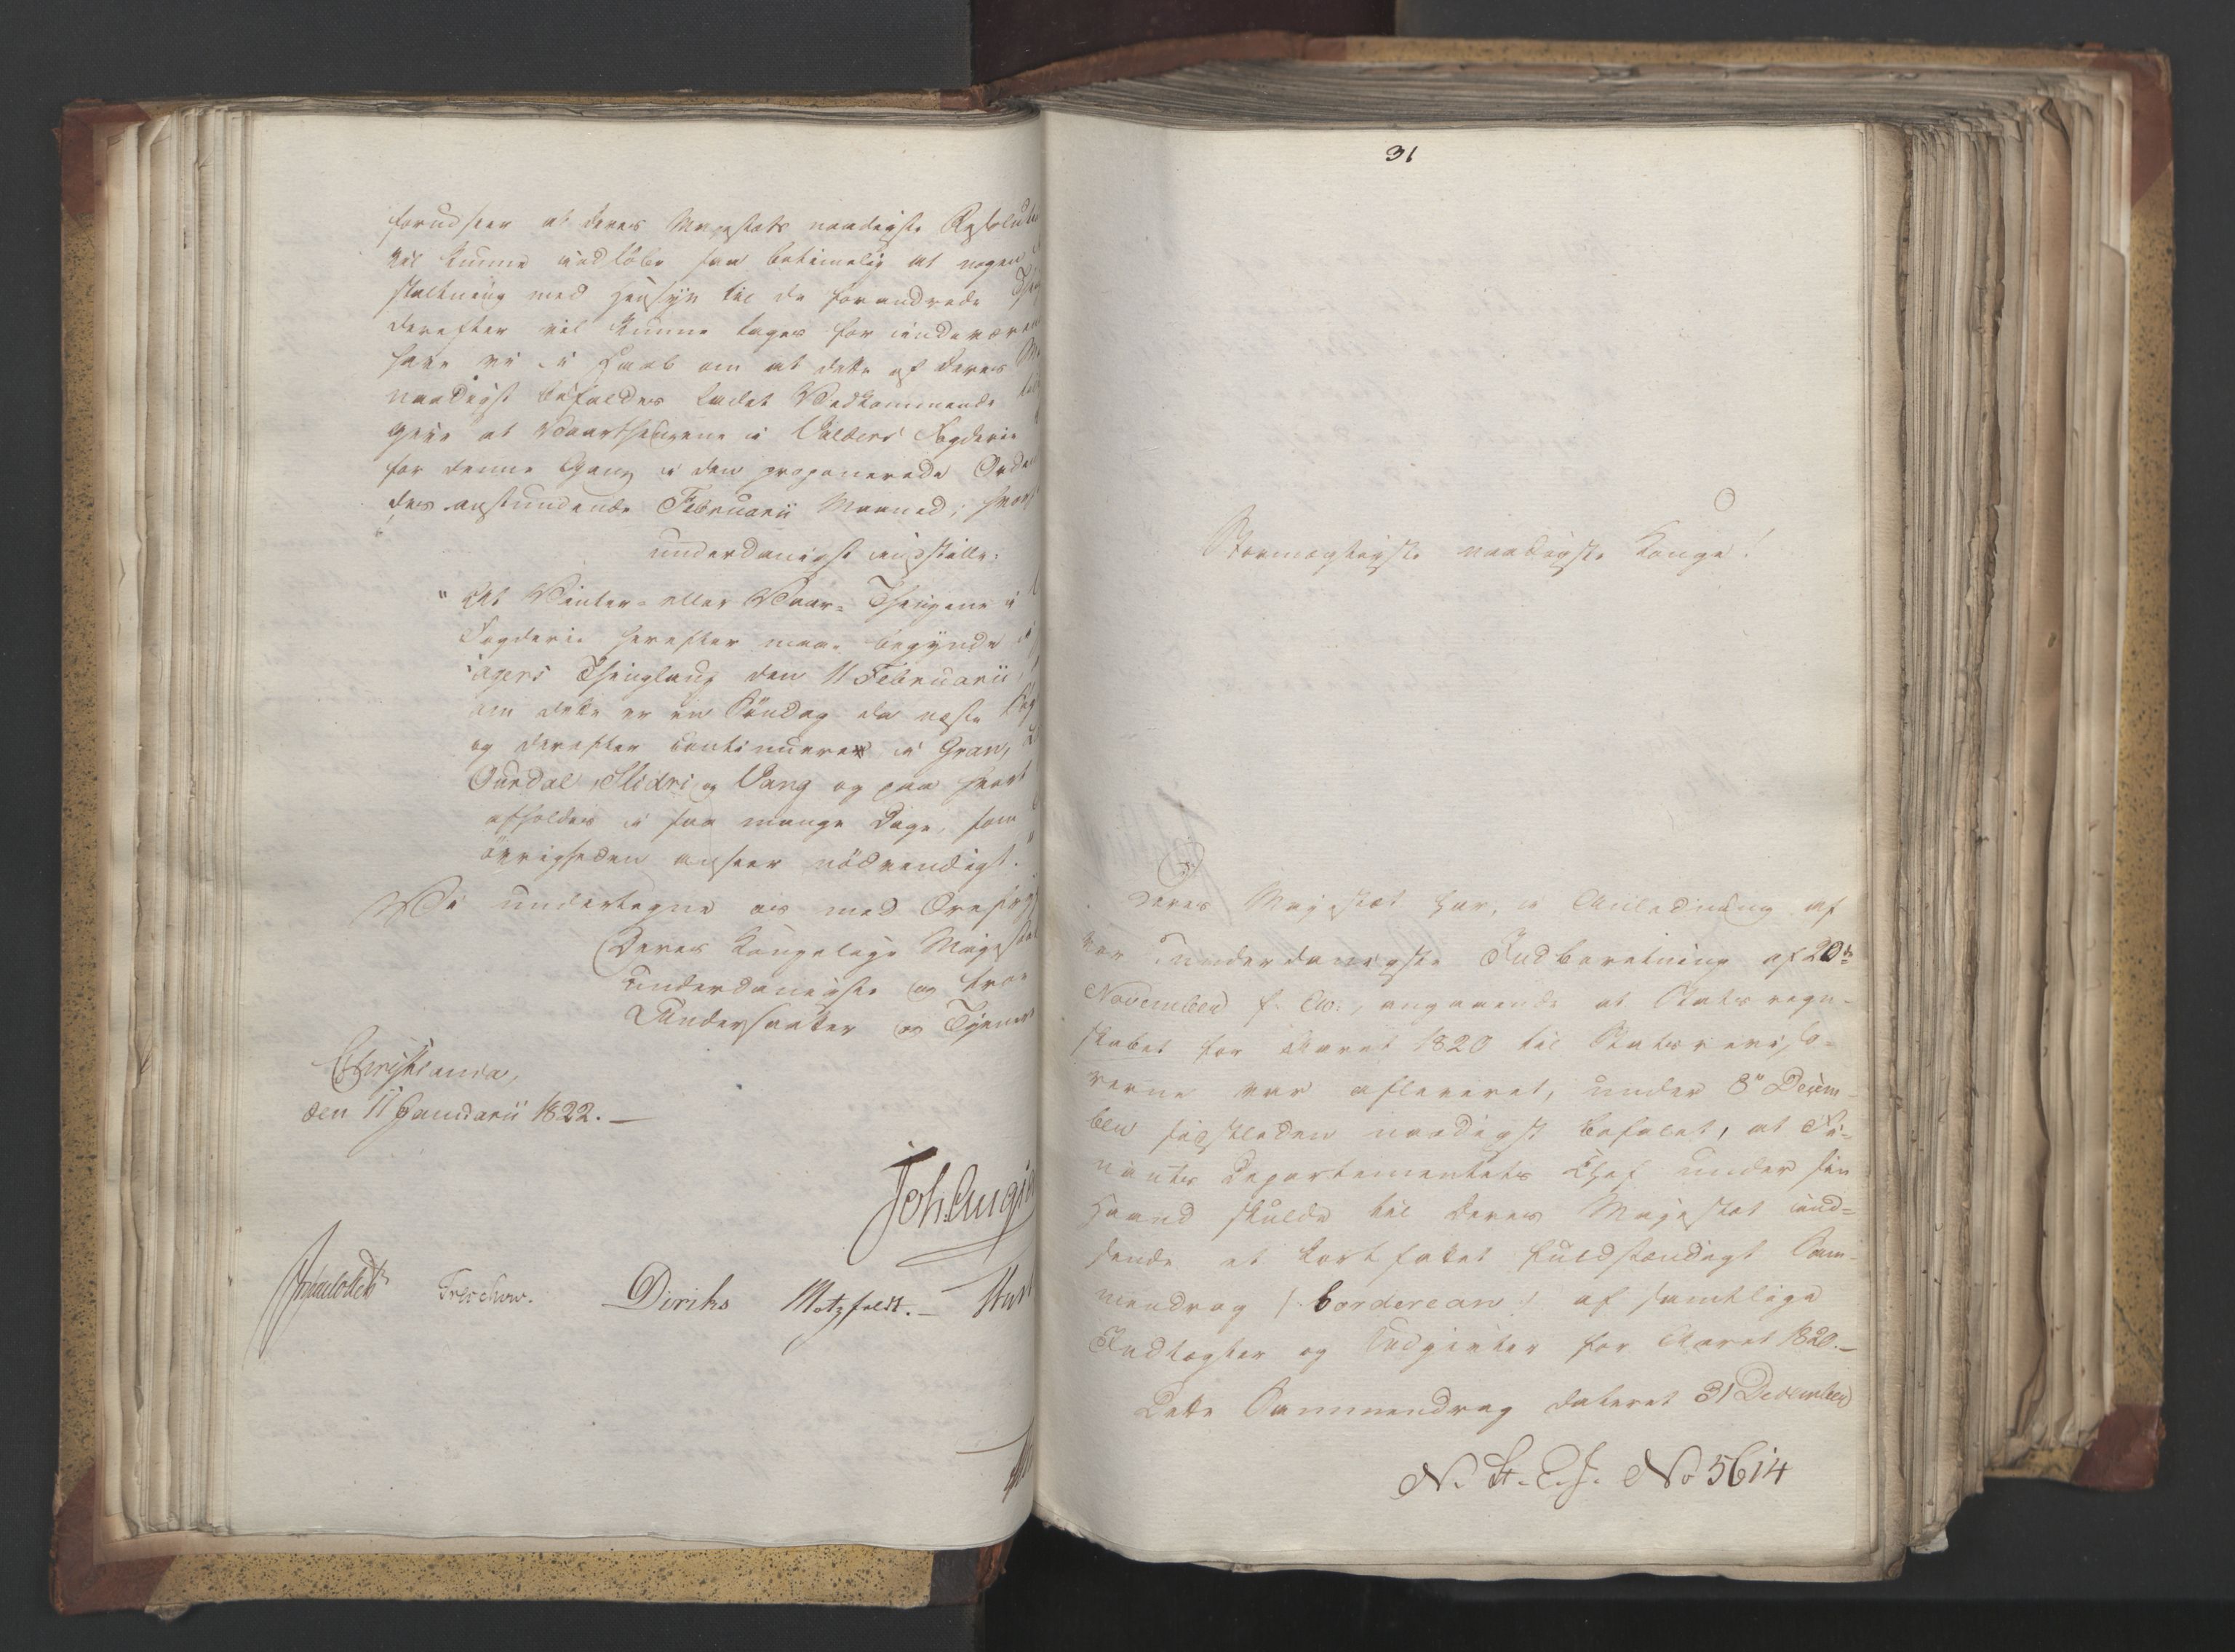 forudseer at Deres Majestæts naadigste Resolut
vil kunne udløbe saa betimelig at nogen
staltning med Hensyn til de forandrede
derefter vil kunne tages for indevær
have vi i Haab om at dette af Deres
naadigst befaldes ladet Vedkommende
give at Vaarthingene i Valders Fogderie
for denne Gang i den proponerede Orde
des anstundende Februarii Maaned; hvor
underdanigst indstille:
"At Vinter- eller Vaar- Thingene i
Fogderie herefter maae begynde
agers Thinglaug den 11 Februarii,
om dette er en Søndag da næste
og derefter continuere i Gran,
Ourdal, Slidri og Vang og paa hvert
afholdes i saa mange Dage, som
øvrigheden anseer nødvendigt."
Vi undertegne os med Ærefrygt
Deres Kongelige Majestæt
underdanigste og troe
Undersaatter og Tjenere
Christiania,
den 11 Januarii 1822. —
Joh. Aug
Treschow.
Diriks
Motzfeldt. —
31
Stormægtigste naadigste Konge!
Deres Majestæt har, i Anledning af
vor underdanigste Indberetning af 20de
November f. A., angaaende at Statsregn-
skabet for Aaret 1820 til Statsreviso-
rerne var afleveret, under 8de Decem-
ber sidstleden naadigst befalet, at Fi-
nants Departementets Chef under sin
Haand skulde til Deres Majestæt ind-
sende et kortfattet fuldstændigt Sam-
mendrag /: borderean :/ af samtlige
Indtægter og Udgivter for Aaret 1820. —
Dette Sammendrag dateret 31 December
N. St. E. J. No 5614